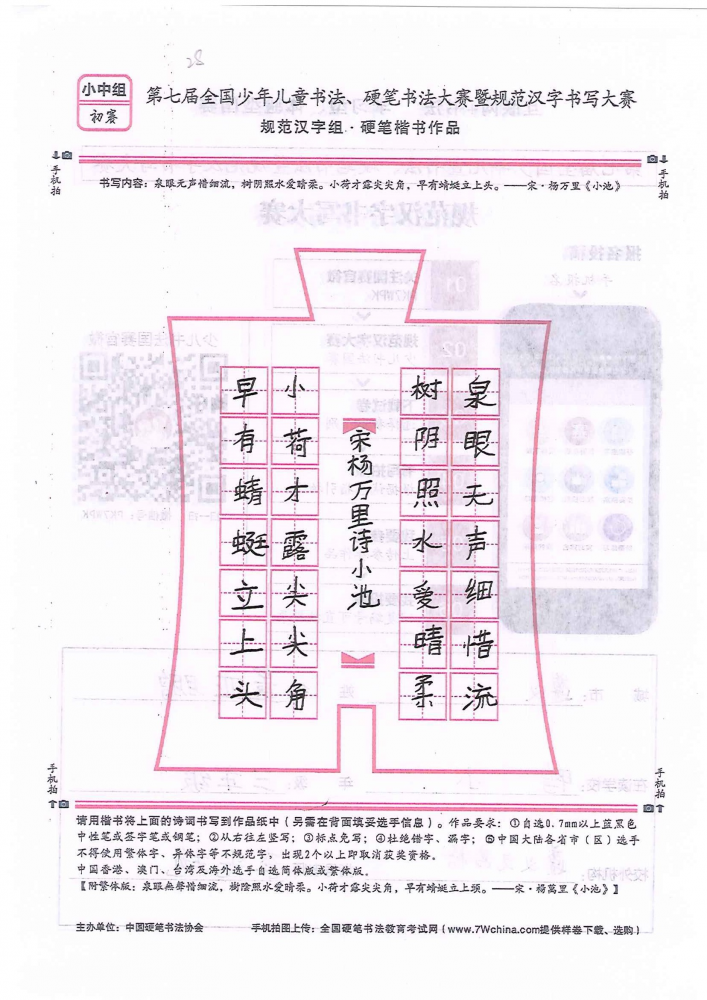 小中组
初赛
第七届全国少年儿童书法、硬笔书法大赛暨规范汉字书写大赛
规范汉字组·硬笔楷书作品
手机拍
手机拍
书写内容：泉眼无声惜细流，树阴照水爱晴柔。小荷才露尖尖角，早有蜻蜓立上头。——宋·杨万里《小池》
泉眼无声细惜流
树阴照水爱晴柔
宋杨万里诗小池
小荷才露尖尖角
早有蜻蜓立上头
手机拍
手机拍
请用楷书将上面的诗词书写到作品纸中（另需在背面填妥选手信息）。作品要求：①自选0.7mm以上蓝黑色
中性笔或签字笔或钢笔；②从右往左竖写；③标点免写；④杜绝错字、漏字；⑤中国大陆各省市（区）选手
不得使用繁体字、异体字等不规范字，出现2个以上即取消获奖资格。
中国香港、澳门、台湾及海外选手自选简体版或繁体版。
【附繁体版：泉眼無聲惜细流，樹陰照水爱晴柔。小荷才露尖尖角，早有蜻蜓立上頭。——宋·楊萬里《小池》】
主办单位：中国硬笔书法协会
手机拍图上传：全国硬笔书法教育考试网（www.7Wchina.com提供样卷下载、选购）